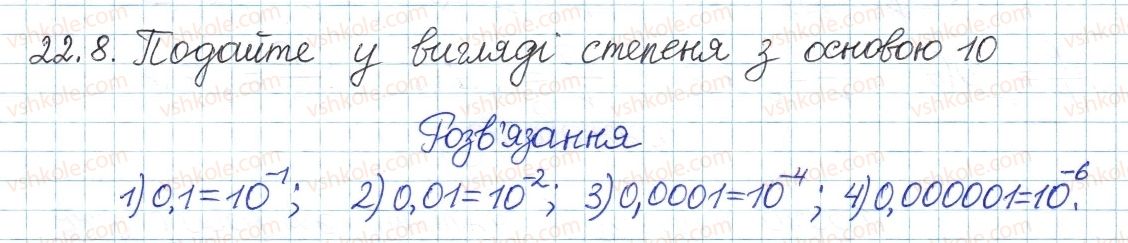 22.8. Подайте у вигляді степеня з основою 10
Розв'язання
1) 0,1=10⁻¹; 2) 0,01=10⁻²; 3) 0,0001=10⁻⁴; 4) 0,000001=10⁻⁶.